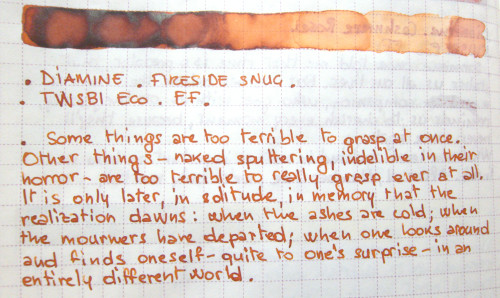 • DIAMINE. FIRESIDE SNUG.
• TWSBI ECO. EF.
• Some things are too terrible to grasp at once.
Other things - naked sputtering, indelible in their
horror - are too terrible to really grasp ever at all.
It is only later, in solitude, in memory that the
realization dawns: when the ashes are cold; when
the mourners have departed; when one looks around
and finds oneself - quite to one's surprise - in an
entirely different world.